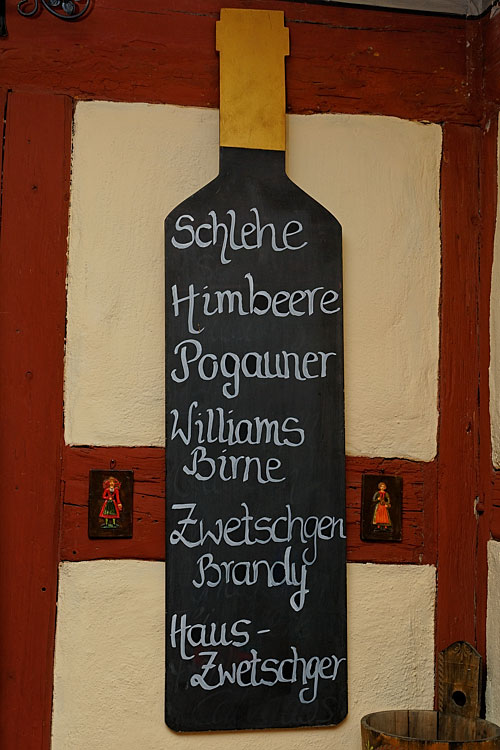 Schlehe
Himbeere
Pogauner
Williams
Birne
Zwetschgen
Brandy
Haus-
Zwetschger